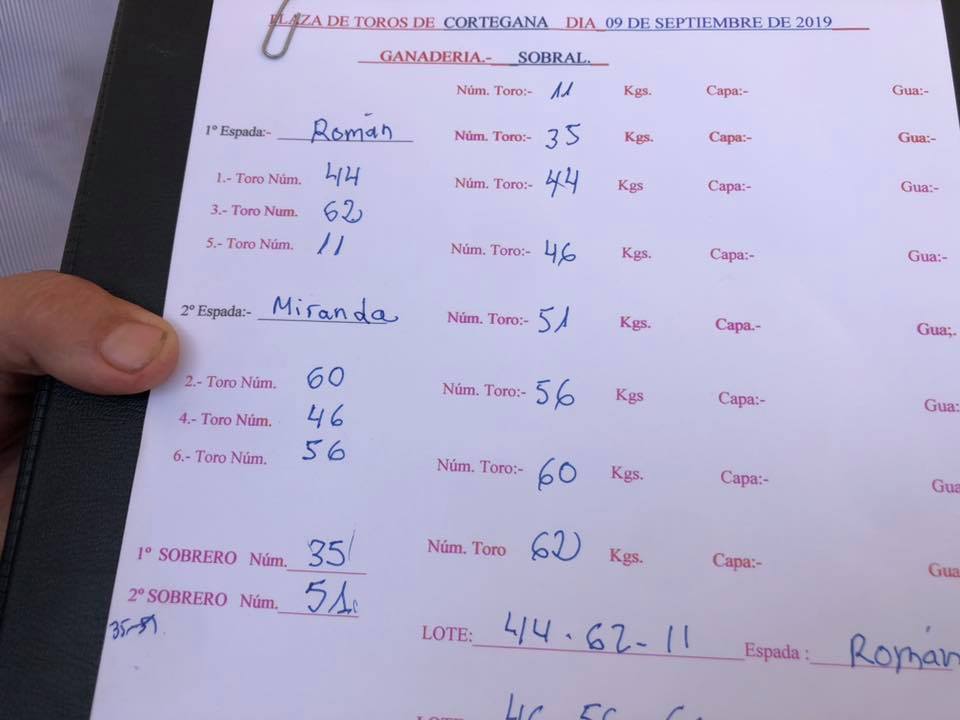 PLAZA DE TOROS DE CORTEGANA DIA 09 DE SEPTIEMBRE DE 2019
GANADERIA.- SOBRAL.
Núm. Toro:- 11 Kgs. Capa:- Gua:-
1º Espada:- Román Núm. Toro:- 35 Kgs. Capa:- Gua:-
1.- Toro Núm. 44 Núm. Toro:- 44 Kgs Capa:- Gua:-
3.- Toro Num. 62
5.- Toro Núm. 11 Núm. Toro:- 46 Kgs. Capa:- Gua:-
2º Espada:- Miranda Núm. Toro:- 51 Kgs. Capa.- Gua;.
2.- Toro Núm. 60 Núm. Toro:- 56 Kgs Capa:- Gua:
4.- Toro Núm. 46
6.- Toro Núm. 56 Núm. Toro:- 60 Kgs. Capa:- Gua
1º SOBRERO Núm. 35 Núm. Toro 62 Kgs. Capa:- Gua
2º SOBRERO Núm. 51
35-51
LOTE: 44-62-11 Espada: Román
LOTE 46 56